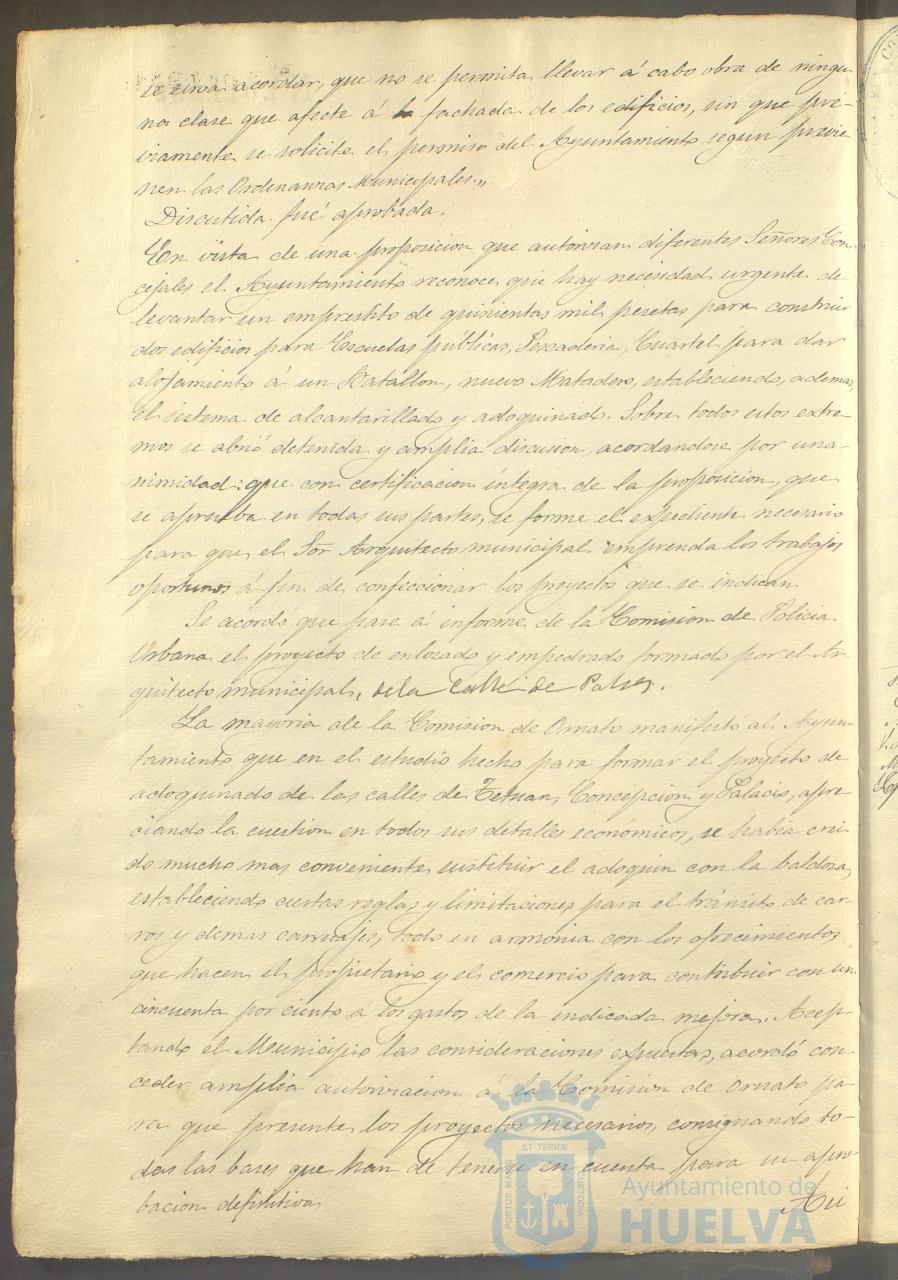 se sirva acordar, que no se permita llevar á cabo obra de ningu-
na clase que afecte á la fachada de los edificios, sin que pré-
viamente se solicite el permiso del Ayuntamiento segun previe
nen las Ordenanzas Municipales.„
Discutida fué aprobada.
En vista de una proposicion que autorizan diferentes Señores Con-
cejales el Ayuntamiento reconoce que hay necesidad urgente de
levantar un emprestito de quinientas mil pesetas para construir
dos edificios para Escuelas públicas, Pescaderia, Cuartel para dar
alojamiento á un Batallon, nuevo Matadero, estableciendo, ademas,
el sistema de alcantarillado y adoquinado. Sobre todos estos extre-
mos se abrió detenida y amplia discusion, acordandose por una-
nimidad: que con certificacion íntegra de la proposicion, que
se aprueba en todas sus partes, se forme el expediente necesario
para que, el Sor Arquitecto municipal emprenda los trabajos
oportunos á fin de confeccionar los proyectos que se indican
Se acordó que pase á informe de la Comision de Policia
Urbana el proyecto de enlozado y empedrado formado por el Ar-
quitecto municipal, de la Calle de Palos.
La mayoria de la Comision de Ornato manifestó al Ayun-
tamiento que en el estudio hecho para formar el proyecto de
adoquinado de las calles de Tetuan, Concepcion y Palacio, apre-
ciando la cuestion en todos sus detalles económicos, se habia crei-
do mucho mas conveniente sustituir el adoquin con la baldosa,
estableciendo ciertas reglas y limitaciones para el tránsito de car-
ros y demas carruajes, todo en armónia con los ofrecimientos
que hacen el propietario y el comercio para contribuir con un
cincuenta por ciento á los gastos de la indicada mejora. Acep-
tando el Municipio las consideraciones expuestas, acordó con-
ceder amplia autorizacion á la Comision de Ornato pa-
ra que presente los proyectos necesarios, consignando to-
das las bases que han de tenerse en cuenta para su apro-
bacion definitiva
Asi
ET TERRÆ
PORTUS MARIS
CUSTODIA
Ayuntamiento de
HUELVA